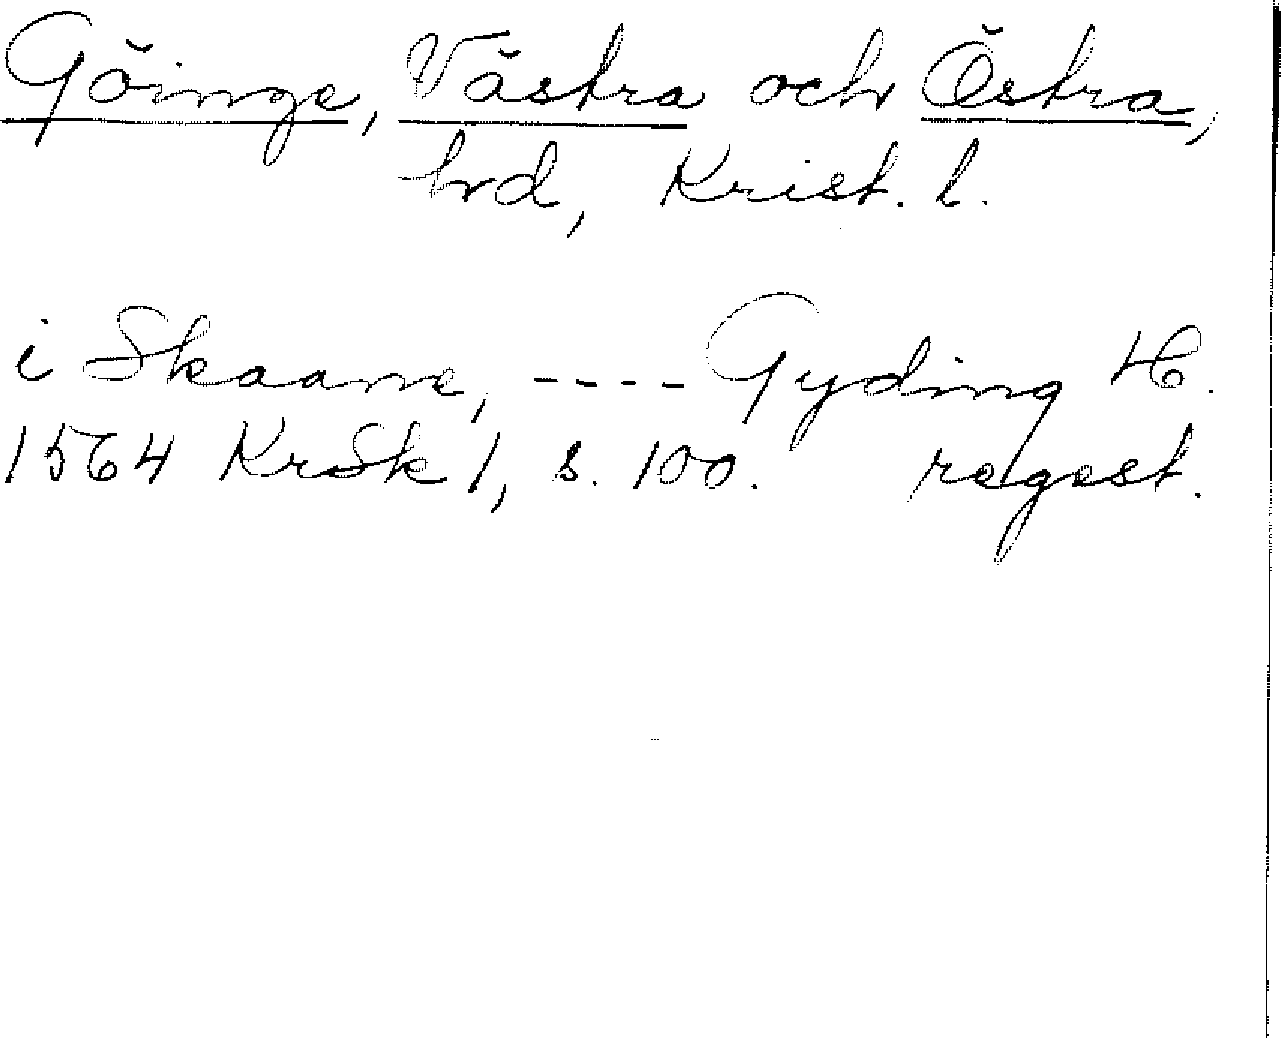 Göinge, Västra och Östra,
hrd, Krist. l.
i Skaane, ---- Gyding H.
1564 KrSk 1, s. 100. regest.